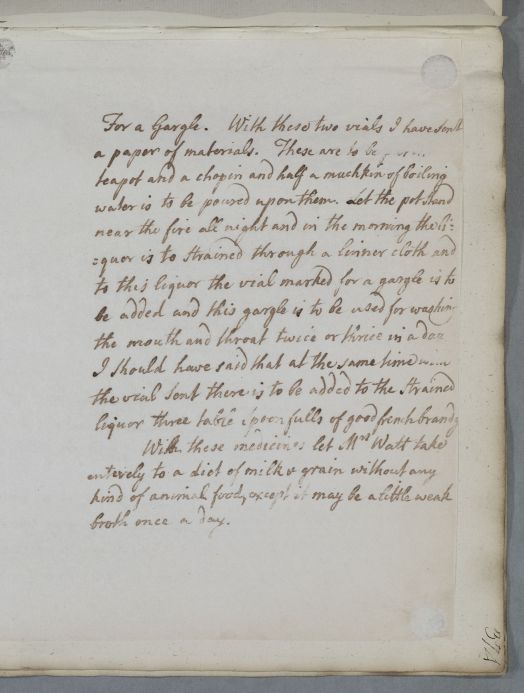 For a Gargle. With these two vials I have sent
a paper of materials. These are to be
teapot and a chopin and half a mutchkin of boiling
water is to be poured upon them. Let the pot stand
near the fire all night and in the morning the li=
=quor is to strained through a linner cloth and
to this liquor the vial marked for a gargle is to
be added and this gargle is to be used for washing
the mouth and throat twice or thrice in a day
I should have said that at the same time with
the vial sent there is to be added to the strained
liquor three table spoonfulls of good french brandy
With these medicines let Mrs Watt take
entirely to a diet of milk & grain without any
kind of animal food, except it may be a little weak
broth once a day.